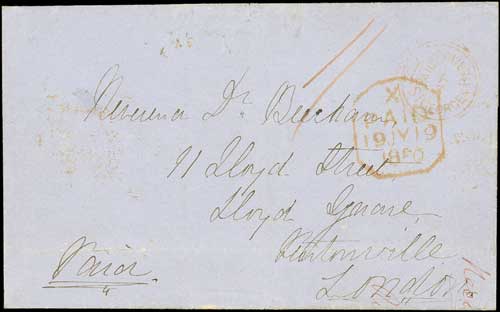 Reverend Dr. Beecham
11 Lloyd Street
Lloyd Square
Pentonville
London
Paid
X
PAID
19 IY 19
1850